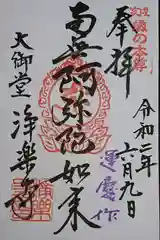 奉拝
令和二年
六月九日
南無阿弥陀如来
運慶作
大御堂
浄楽寺